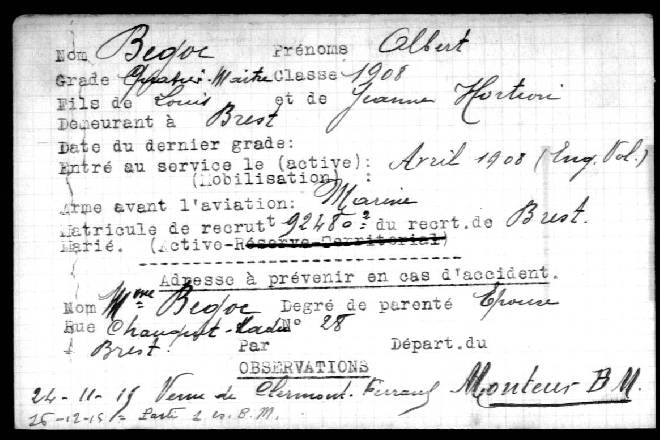 Nom Begoc Prénoms Albert
Grade Quartier-Maître Classe 1908
Fils de Louis et de Jeanne
Demeurant à Brest
Date du dernier grade:
Entré au service le (active): Avril 1908 (Eng. Vol.)
(Mobilisation) :
Arme avant l'aviation: Marine
Matricule de recrutt 92480 2 du recrt.de Brest.
Marié. (Active-Réserve-Territorial)
Adresse à prévenir en cas d'accident.
Nom Mme Begoc Degré de parenté Epouse
Rue N° 28
à Brest. Par Départ.du
OBSERVATIONS
24-11-15 Venu de Clermont-Ferrand Monteur B M.
26-12-15 = Parti B.M.